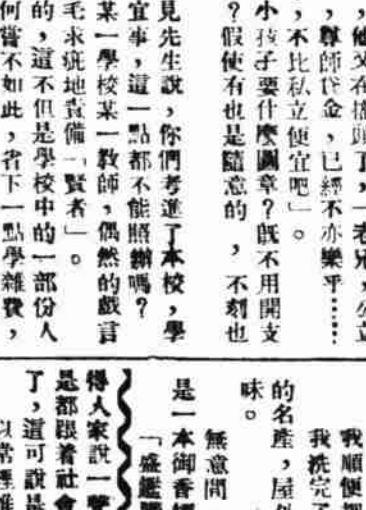 ，他又在搖頭了，「老兄，公立
，尊師代金，已經不亦樂乎……
，不比私立便宜吧」。
小孩子要什麼圖章？既不用開支
？假使有也是隨意的，不刻也
見先生說，你們考進了本校，學
宜事，這一點都不能照辦嗎？
某一學校某一教師，偶然的戲言
毛求疵地責備「賢者」。
的，這不但是學校中的一部份人
何嘗不如此，省下一點學雜費，
我順便把
我洗完了
的名產，屋外
味。
無意間
是一本御香
「盛鑑
得人家說一聲
是都跟着社會
了，這可說是
以常理